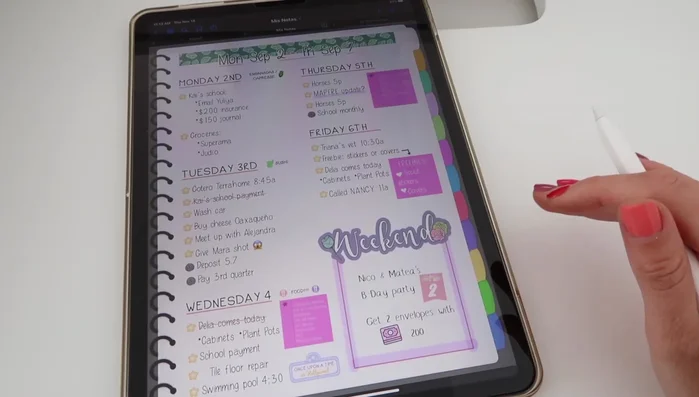 My Notes
Mon Sep 2
MONDAY 2ND
Kai's school
*$200 insurance
*$150 journal
Groceries:
*Superama
TUESDAY 3RD
Cotera Terrahome 8:45a
Kai's school payment
Wash car
Buy cheese Oaxaqueño
Meet up with Alejandra
Give Mara shot
Deposit 5.7
Pay 3rd quarter
WEDNESDAY 4
Delia comes today
*Cabinets *Plant Pots
School payment
Tile floor repair
Swimming pool 4:30
ONCE UPON A TIME
THURSDAY 5TH
Horses 5p
MAPFRE update?
Horses 5p
School monthly
FRIDAY 6TH
vet 10:30a
Freebie: stickers or covers
Delia comes today
*Cabinets *Plant Pots
Called NANCY 11a
Weekend
Nico & Matea's
B Day party
2
Get 2 envelopes with
200